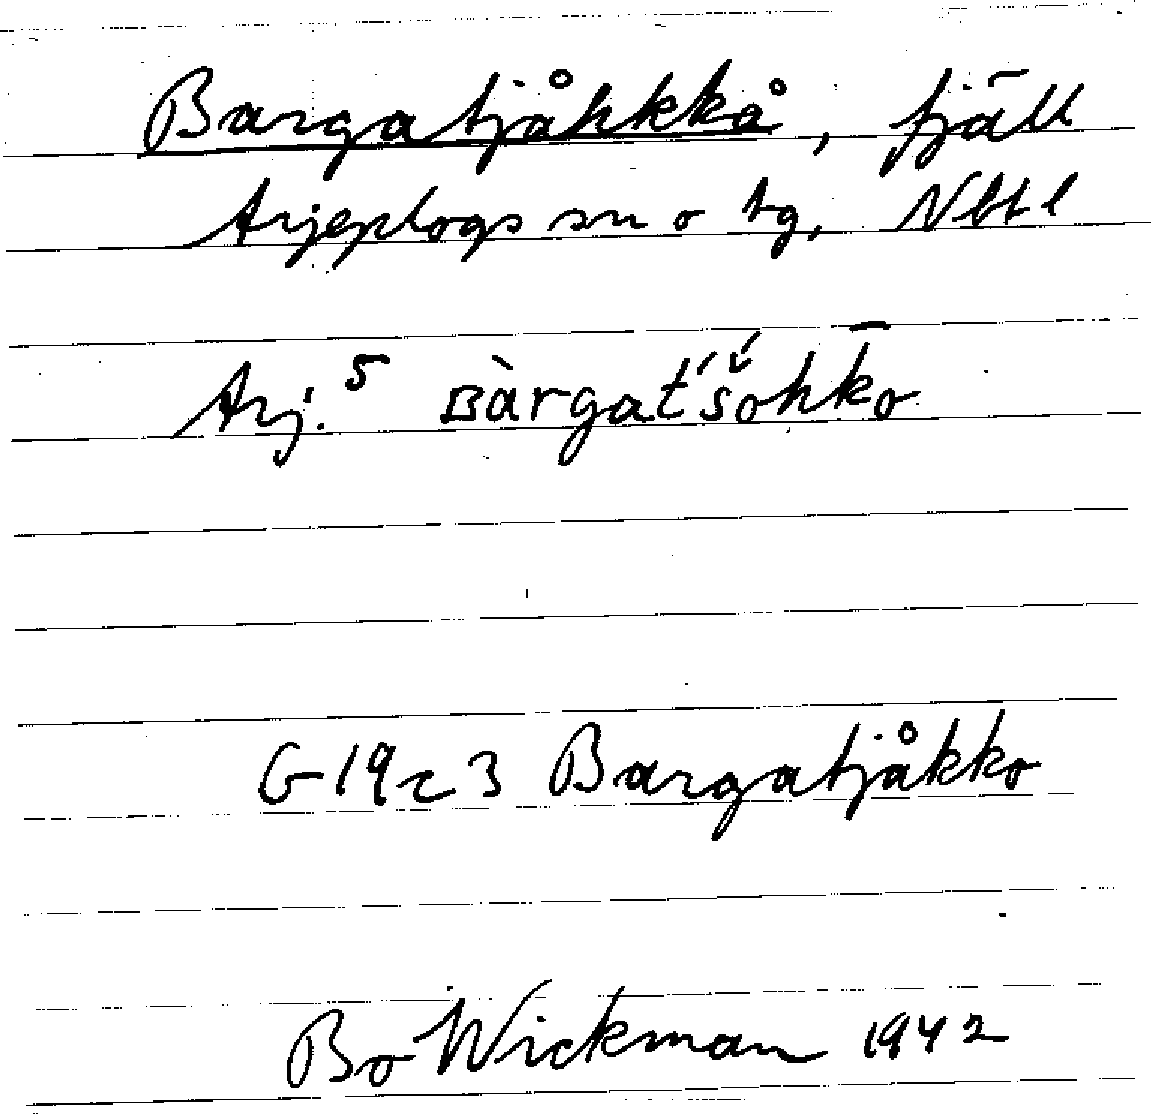 Bargatjåhkkå, fjäll
Arjeplogs sn o tg, Nbtl
Arj.⁵ ʙàrgat́'š́ohk̄o
G 19 c 3 Bargatjåkko
Bo Wickman 1942